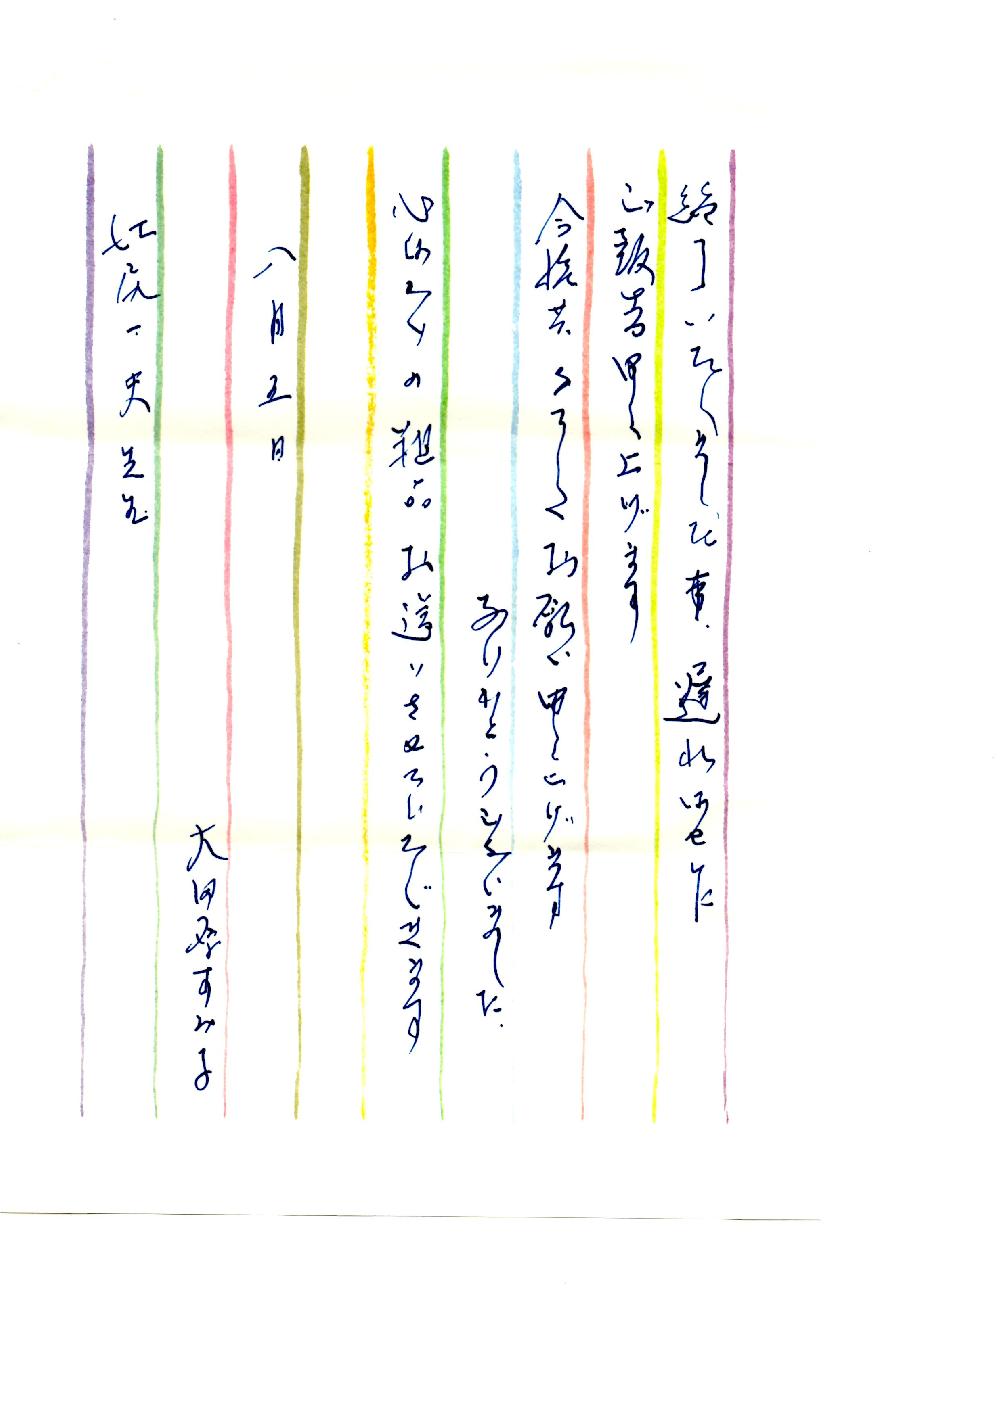 終了いたしました事、遅ればせ乍
ら御報告申し上げます
今後共よろしくお願い申し上げます
ありがとうございました。
心ばかりの粗品お送りさせていただきます
八月五日
大田 すみ子
一史先生